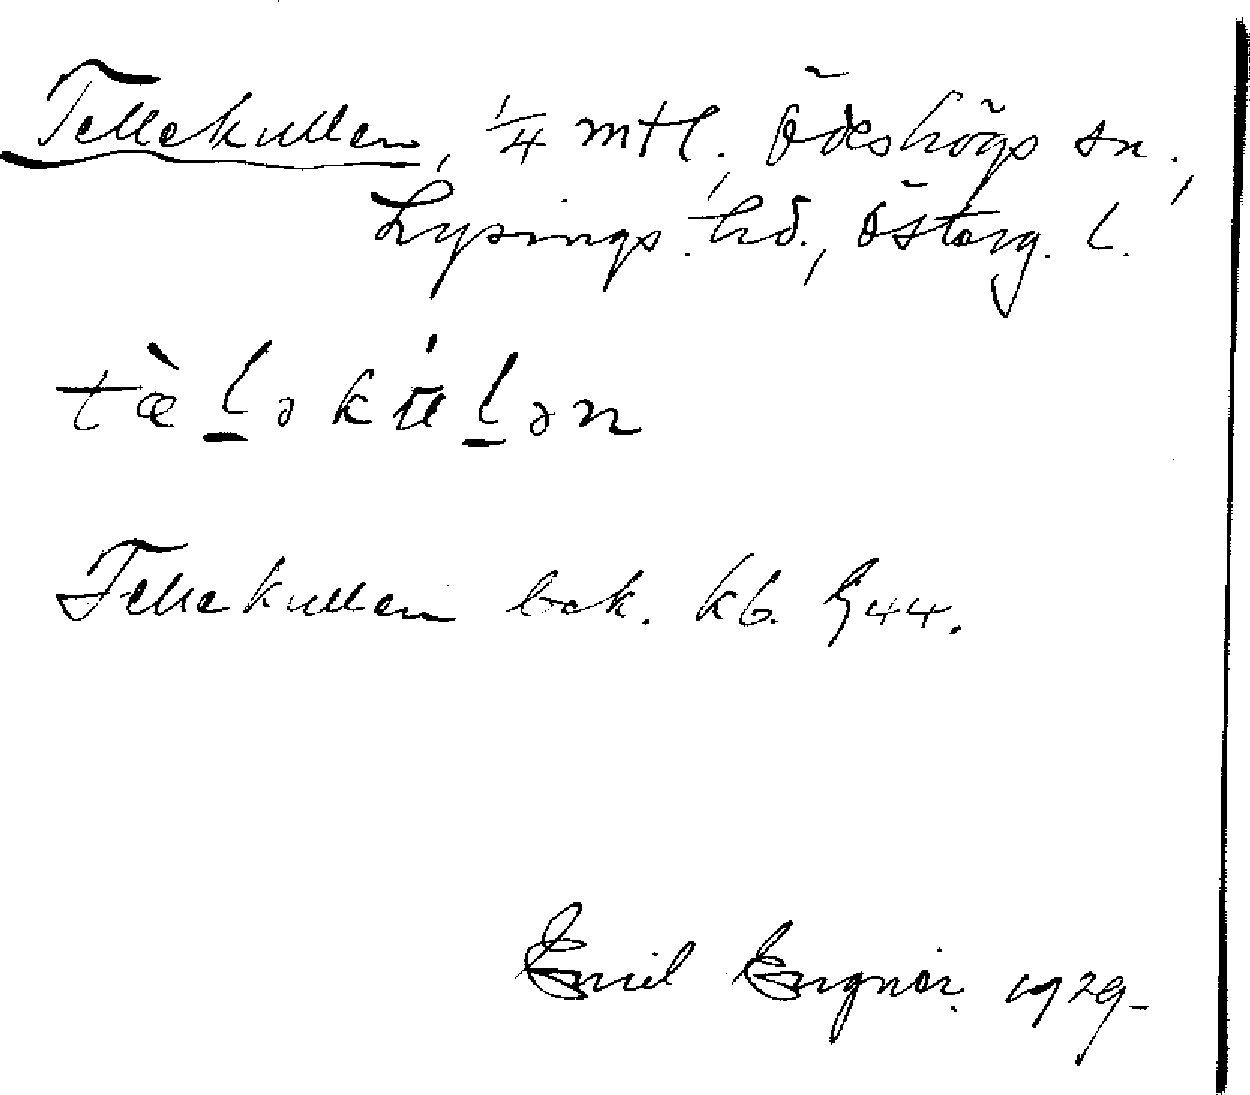 Tellekullen, 1/4 mtl., Ödeshögs sn.,
Lysings hd., Österg. l.
tæ̀l̠əkul̠ən
Tellekullen ek. kb.
Emil Ergner. 1929